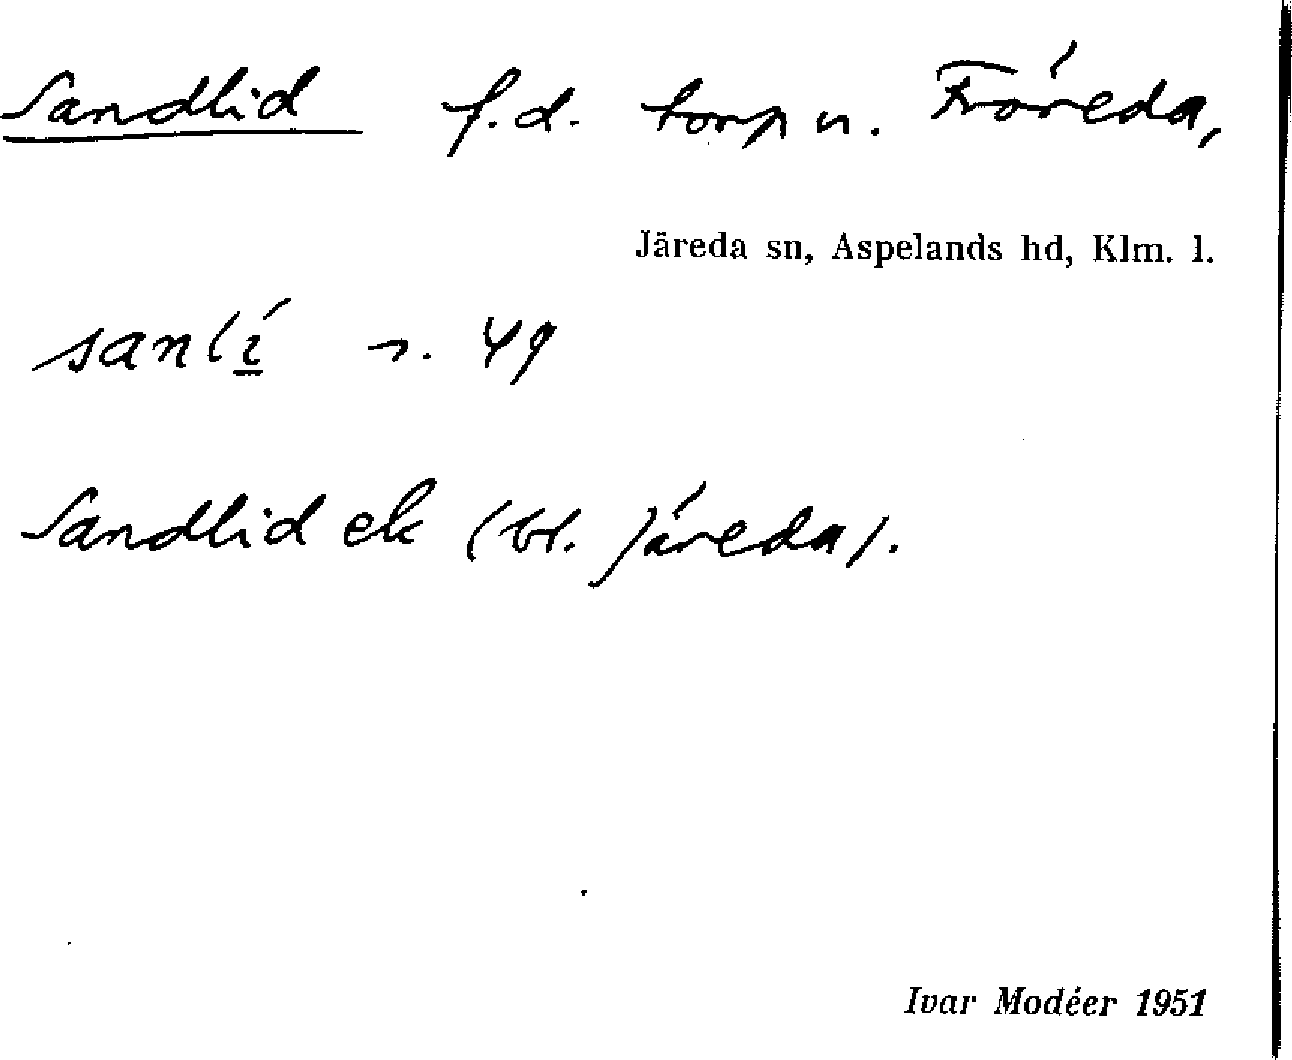 Sandlid f.d. torp u. Fröreda,
Järeda sn, Aspelands hd, Klm. l.
sanlí 49
Sandlid ek (bl. Järeda).
Ivar Modéer 1951